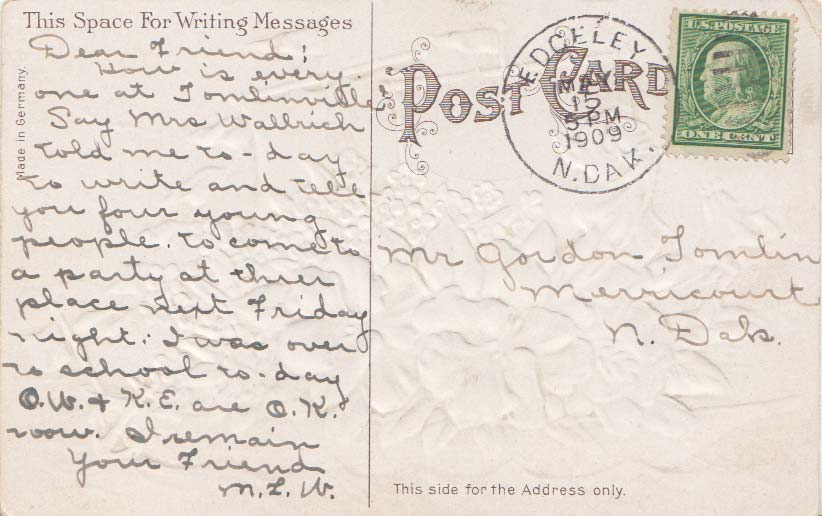 This Space For Writing Messages
Dear Friend;
How is every-
one at Tomlinville
Say Mrs Wallrich
told me to-day
to write and tell
you four young
people. to come to
a party at thier
place next Friday
night. I was over
to school to-day
O.W. & K.E. are O.K.
now. I remain
Your Friend
M.L.W.
Made in Germany.
POST CARD
EDGELEY
MAY
15
5 PM
1909
N. DAK.
U.S. POSTAGE
ONE CENT
Mr Gordon Tomlin
Merricourt
N. Dak.
This side for the Address only.